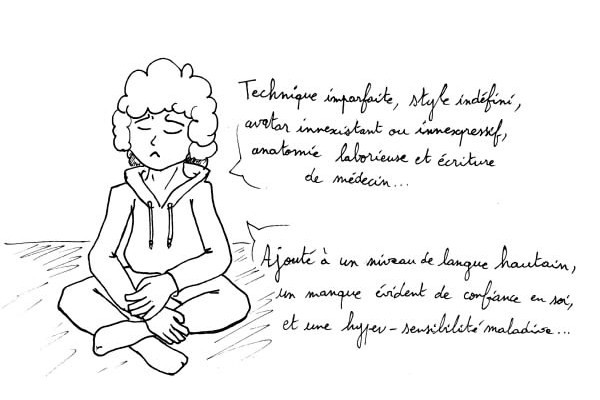 Technique imparfaite, style indéfini,
avatar innexistant ou innexpressif,
anatomie laborieuse et écriture
de médecin...
Ajouté à un niveau de langue hautain,
un manque évident de confiance en soi,
et une hyper-sensibilité maladive...